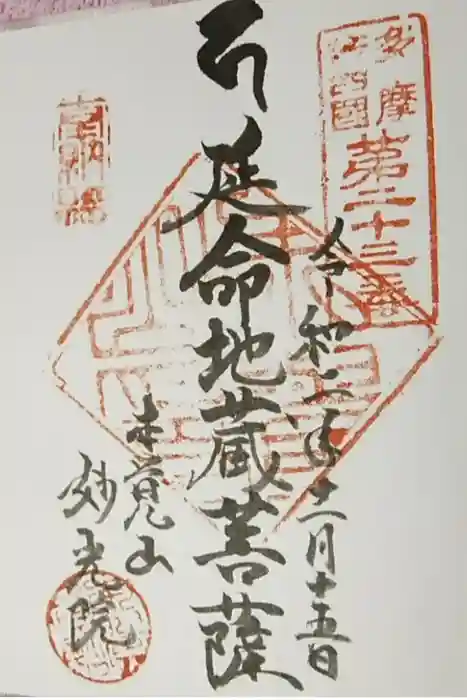 多摩
四国
第二十三番
令和二年十一月十五日
延命地蔵菩薩
本覚山
妙光院